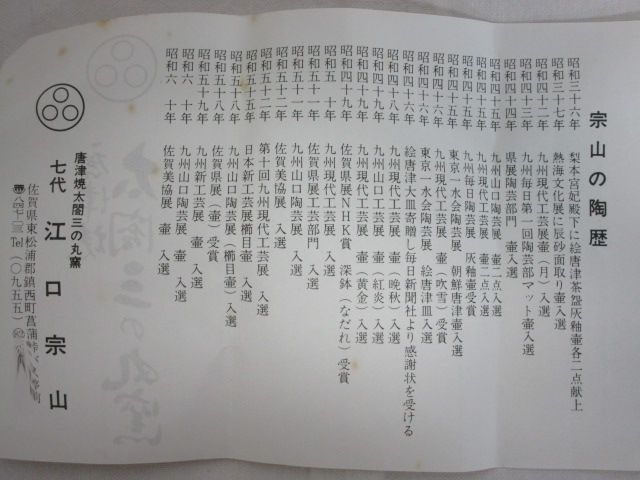 宗山の陶歴
昭和三十六年　梨本宮妃殿下に絵唐津茶盌灰釉壷各二点献上
昭和三十七年　熱海文化展に辰砂面取り壷入選
昭和四十二年　九州現代工芸展　壷（月）入選
昭和四十三年　九州毎日第一回陶芸部マット壷入選
昭和四十四年　県展陶芸部門　壷　入選
昭和四十五年　九州山口陶芸展　壷二点入選
昭和四十五年　九州現代工芸展　壷二点入選
昭和四十五年　九州毎日陶芸展　灰釉壷受賞
昭和四十五年　東京一水会陶芸展　朝鮮唐津壷入選
昭和四十六年　九州現代工芸展　壷（吹雪）受賞
昭和四十六年　東京一水会陶芸展　絵唐津皿入選
昭和四十六年　絵唐津大皿寄贈し毎日新聞社より感謝状を受ける
昭和四十八年　九州現代工芸展　壷（晩秋）入選
昭和四十九年　九州山口工芸展　壷（紅炎）入選
昭和四十九年　九州現代工芸展　壷（黄金）入選
昭和四十九年　佐賀県展NHK賞　深鉢（なだれ）受賞
昭和五　十年　九州現代工芸展　壷　入選
昭和五十一年　佐賀県展工芸部門　入選
昭和五十一年　九州山口陶芸展　入選
昭和五十二年　佐賀美協展　入選
昭和五十二年　第十回九州現代工芸展　入選
昭和五十五年　日本新工芸展櫛目壷　入選
昭和五十八年　九州山口陶芸展（櫛目壷）入選
昭和五十八年　佐賀県展（壷）受賞
昭和五十九年　九州新工芸展　壷　入選
昭和六　十年　九州山口陶芸展　壷　入選
昭和六　十年　佐賀美協展　壷　入選
唐津焼太閤三の丸窯
七代　江口宗山
佐賀県東松浦郡鎮西町菖蒲峠バス停前
Tel（〇九五五）